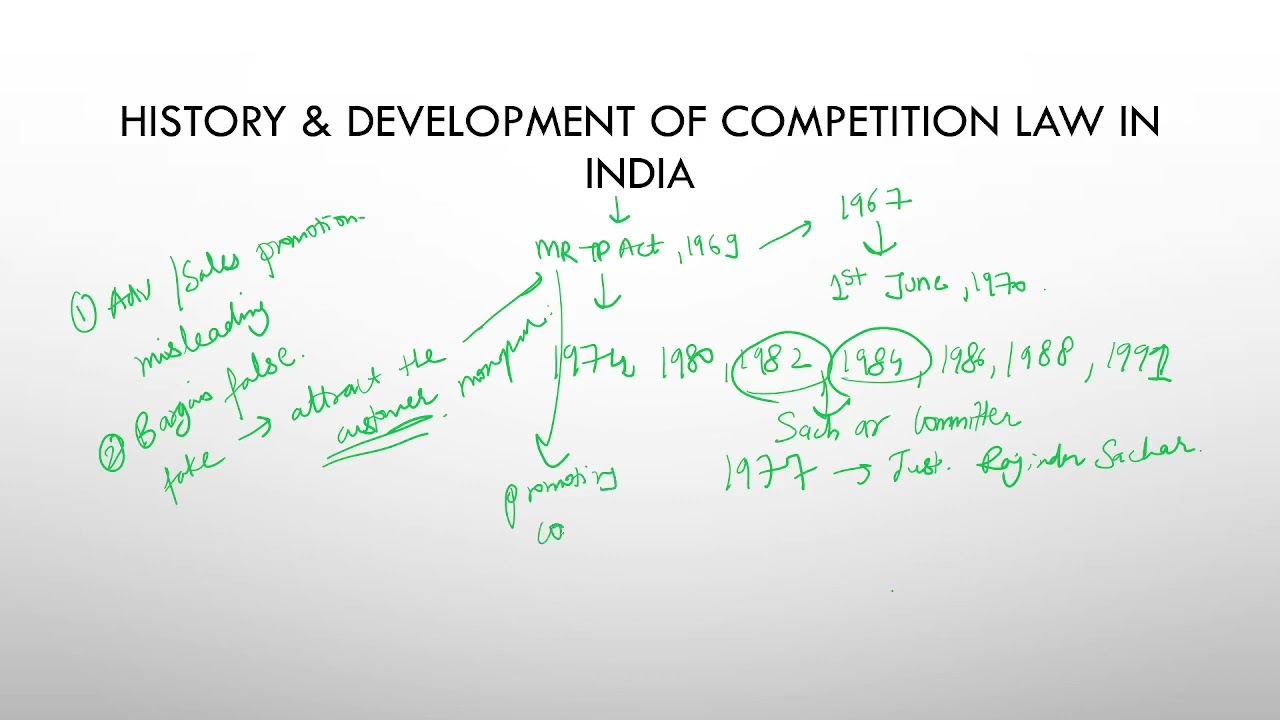 HISTORY & DEVELOPMENT OF COMPETITION LAW IN
INDIA
MRTP Act, 1969
1967
1st June, 1970.
1974 1980, 1982, 1984, 1986, 1988, 1991
Sachar Committee
1977 → Just. Rajinder Sachar.
① Adv / Sales promotion
misleading
② false.
fake → attract the
customer.
promoting
co